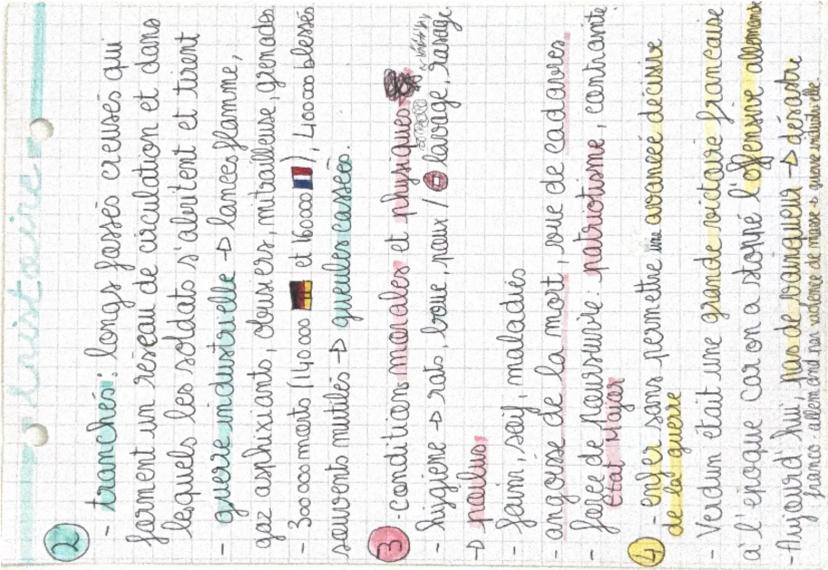 histoire
2
- tranchés : longs fossés creusés qui
forment un réseau de circulation et dans
lesquels les soldats s'abritent et tirent
- guerre industrielle → lances flamme,
gaz asphixiants, obusiers, mitrailleuse, grenades
- 300 000 morts (140 000 et 160 000), 400 000 blessé
souvents mutilés → gueules cassées.
3 - conditions morales et physiques
- hygiène → rats, boue, poux / lavage, rasage
→ poilus
- faim, soif, maladies
- angoisse de la mort, vue de cadavres
- forcée de poursuivre : patriotisme, contrainte
État Major
4 - enfer sans permettre une avancée décisive
de la guerre
- Verdun était une grande victoire française
à l'époque car on a stoppé l'offensive allemande
- Aujourd'hui, pas de vainqueur → désastre
franco-allemand par violence de masse → guerre industrielle